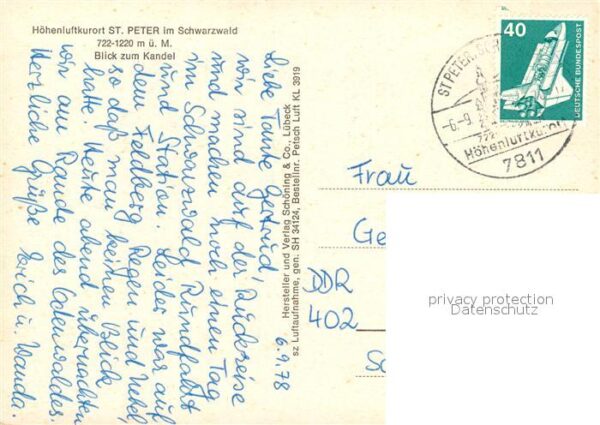 Höhenluftkurort ST. PETER im Schwarzwald
722-1220 m ü. M.
Blick zum Kandel
6.9.78
Liebe Tante Gertrud,
wir sind auf der Rückreise
und machen noch einen Tag
im Schwarzwald Rundfahrt
und Station. Leider war auf
dem Feldberg Regen und Nebel,
so daß man keinen Blick
hatte. Heute abend übernachten
wir am Rande des Odenwaldes.
Herzliche Grüße Erich u. Wanda.
Hersteller und Verlag Schöning & Co., Lübeck
sz Luftaufnahme, gen. SH 34124, Bestellnr. Petsch Luft KL 3919
40
DEUTSCHE BUNDESPOST
ST PETER, SCH
-6.-9
Höhenluftkurort
7811
Frau
Ge
DDR
402
Sc
privacy protection
Datenschutz